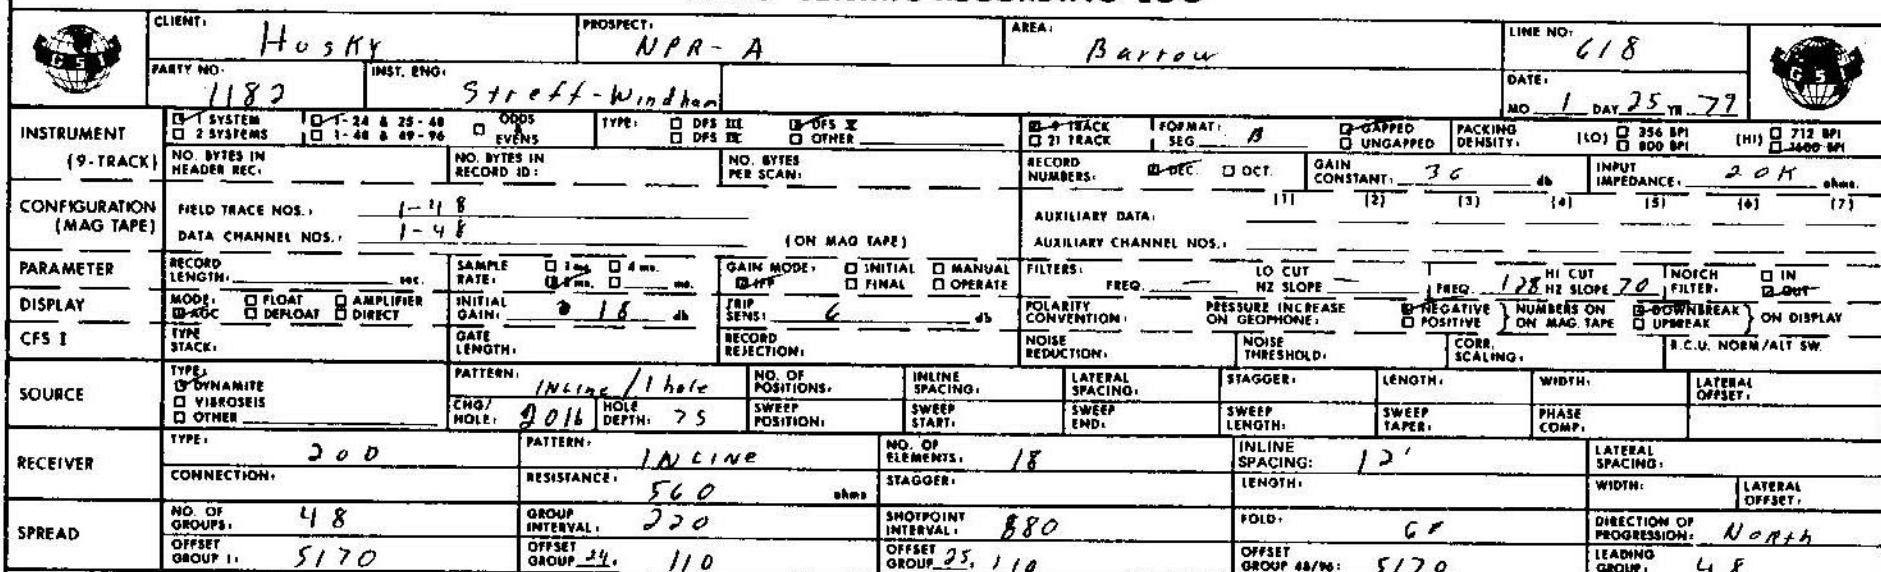 CLIENT: Husky PROSPECT: NPR-A AREA: Barrow LINE NO: 618
GSI
PARTY NO. 1182 INST. ENG: Streff-Windham DATE: MO 1 DAY 25 YR. 79
GSI
INSTRUMENT (9-TRACK)
1 SYSTEM 1-24 & 25-48 ODDS & EVENS TYPE: DFS III DFS V 9 TRACK FORMAT: B GAPPED PACKING DENSITY: (LO) 356 BPI (HI) 712 BPI
2 SYSTEMS 1-48 & 49-96 DFS IV OTHER 21 TRACK SEG UNGAPPED 800 BPI 1600 BPI
NO. BYTES IN HEADER REC: NO. BYTES IN RECORD ID: NO. BYTES PER SCAN: RECORD NUMBERS: DEC. OCT. GAIN CONSTANT: 36 db INPUT IMPEDANCE: 20K ohms.
CONFIGURATION (MAG TAPE)
FIELD TRACE NOS.: 1-48 AUXILIARY DATA: (1) (2) (3) (4) (5) (6) (7)
DATA CHANNEL NOS.: 1-48 (ON MAG TAPE) AUXILIARY CHANNEL NOS.:
PARAMETER RECORD LENGTH: sec. SAMPLE RATE: 1 ms. 4 ms. 2 ms. ms. GAIN MODE: INITIAL MANUAL IFP FINAL OPERATE FILTERS: FREQ. — LO CUT HZ SLOPE — FREQ. 128 HI CUT HZ SLOPE 70 NOTCH FILTER: IN OUT
DISPLAY MODE: FLOAT AMPLIFIER AGC DEFLOAT DIRECT INITIAL GAIN: 18 db TRIP SENS: 6 db POLARITY CONVENTION: PRESSURE INCREASE ON GEOPHONE: NEGATIVE POSITIVE } NUMBERS ON ON MAG. TAPE DOWNBREAK UPBREAK } ON DISPLAY
CFS I TYPE STACK: GATE LENGTH: RECORD REJECTION: NOISE REDUCTION: NOISE THRESHOLD: CORR. SCALING: R.C.U. NORM/ALT SW.
SOURCE TYPE: DYNAMITE VIBROSEIS OTHER PATTERN: INLine/1 hole NO. OF POSITIONS: INLINE SPACING: LATERAL SPACING: STAGGER: LENGTH: WIDTH: LATERAL OFFSET:
CHG/HOLE: 20lb HOLE DEPTH: 75 SWEEP POSITION: SWEEP START: SWEEP END: SWEEP LENGTH: SWEEP TAPER: PHASE COMP:
RECEIVER TYPE: 20D PATTERN: INLINE NO. OF ELEMENTS: 18 INLINE SPACING: 12' LATERAL SPACING:
CONNECTION: RESISTANCE: 560 ohms STAGGER: LENGTH: WIDTH: LATERAL OFFSET:
SPREAD NO. OF GROUPS: 48 GROUP INTERVAL: 220 SHOTPOINT INTERVAL: 880 FOLD: DIRECTION OF PROGRESSION: North
OFFSET GROUP 1: 5170 OFFSET GROUP 24: 110 OFFSET GROUP 25: 110 OFFSET GROUP 48/96: 5170 LEADING GROUP: 48